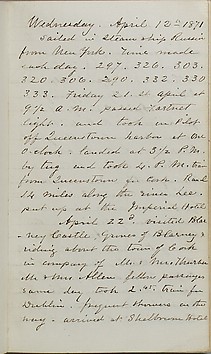 Wednesday. April 12th 1871
Sailed in Steam ship Russia
from New York. Time made
each day. 297. 326. 303.
320. 300. 290. 332. 330
333. Friday 21st April at
9½ a.m. passed Fastnet
light. and took in Pilot
off Queenstown harbor at One
O.clock. landed at 3½ P.M.
by tug and took 4. P.M. train
from Queenstown for Cork. Road
14 miles along the river Lee.
put up at the Imperial Hotel
April 22d. visited Blar
ney Castle, Groves of Blarney &
riding about the town of Cork
in company of Mr. & Mrs.
Mr & Mrs. Allen fellow passengers
same day took 2. train for
Dublin. frequent showers on the
way. arrived at Shelbourne Hotel